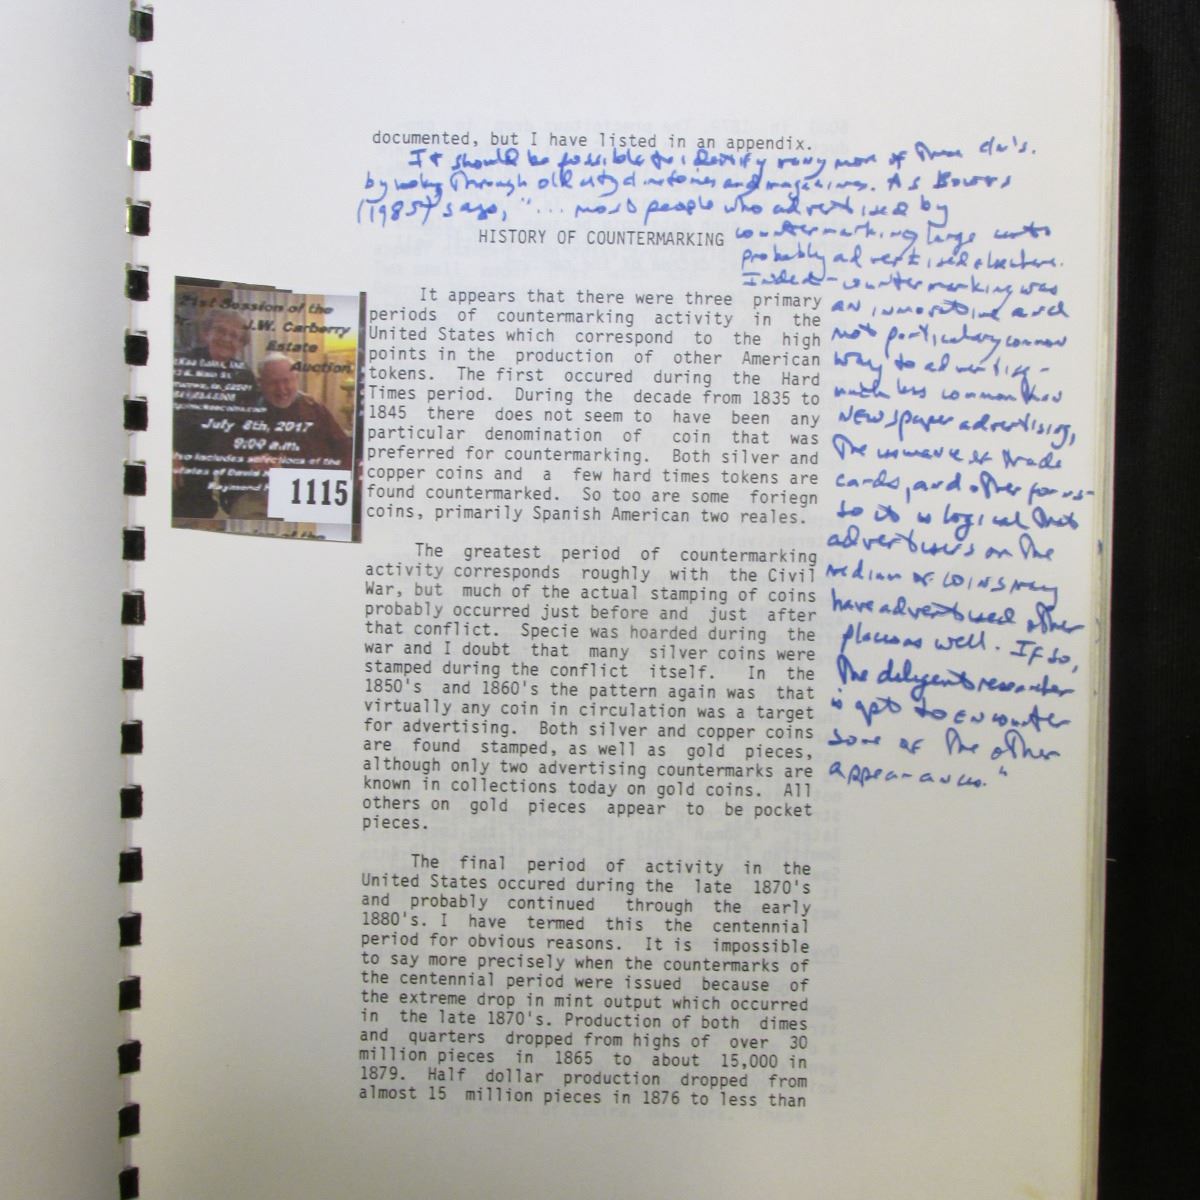 documented, but I have listed in an appendix.
It should be possible to identify many more of these cm's.
by looking through old city directories and magazines. As Bowers
(1985) says, "... most people who advertised by
countermarking large cents
probably advertised elsewhere.
Indeed - countermarking was
an inmostime and
not particularly common
way to advertise -
much less common than
newspaper advertising,
the issuance of trade
cards, and other forms -
so it is logical that
advertisers on the
medium of coins may
have advertised other
places as well. If so,
the diligent researcher
is apt to encounter
some of the other
appearances."
HISTORY OF COUNTERMARKING
It appears that there were three primary
periods of countermarking activity in the
United States which correspond to the high
points in the production of other American
tokens. The first occured during the Hard
Times period. During the decade from 1835 to
1845 there does not seem to have been any
particular denomination of coin that was
preferred for countermarking. Both silver and
copper coins and a few hard times tokens are
found countermarked. So too are some foriegn
coins, primarily Spanish American two reales.
The greatest period of countermarking
activity corresponds roughly with the Civil
War, but much of the actual stamping of coins
probably occurred just before and just after
that conflict. Specie was hoarded during the
war and I doubt that many silver coins were
stamped during the conflict itself. In the
1850's and 1860's the pattern again was that
virtually any coin in circulation was a target
for advertising. Both silver and copper coins
are found stamped, as well as gold pieces,
although only two advertising countermarks are
known in collections today on gold coins. All
others on gold pieces appear to be pocket
pieces.
The final period of activity in the
United States occured during the late 1870's
and probably continued through the early
1880's. I have termed this the centennial
period for obvious reasons. It is impossible
to say more precisely when the countermarks of
the centennial period were issued because of
the extreme drop in mint output which occurred
in the late 1870's. Production of both dimes
and quarters dropped from highs of over 30
million pieces in 1865 to about 15,000 in
1879. Half dollar production dropped from
almost 15 million pieces in 1876 to less than
21st Session of the
J.W. Carberry
Estate
Auction
July 8th, 2017
9:00 a.m.
includes selections of the
Estates of David
Raymond
1115